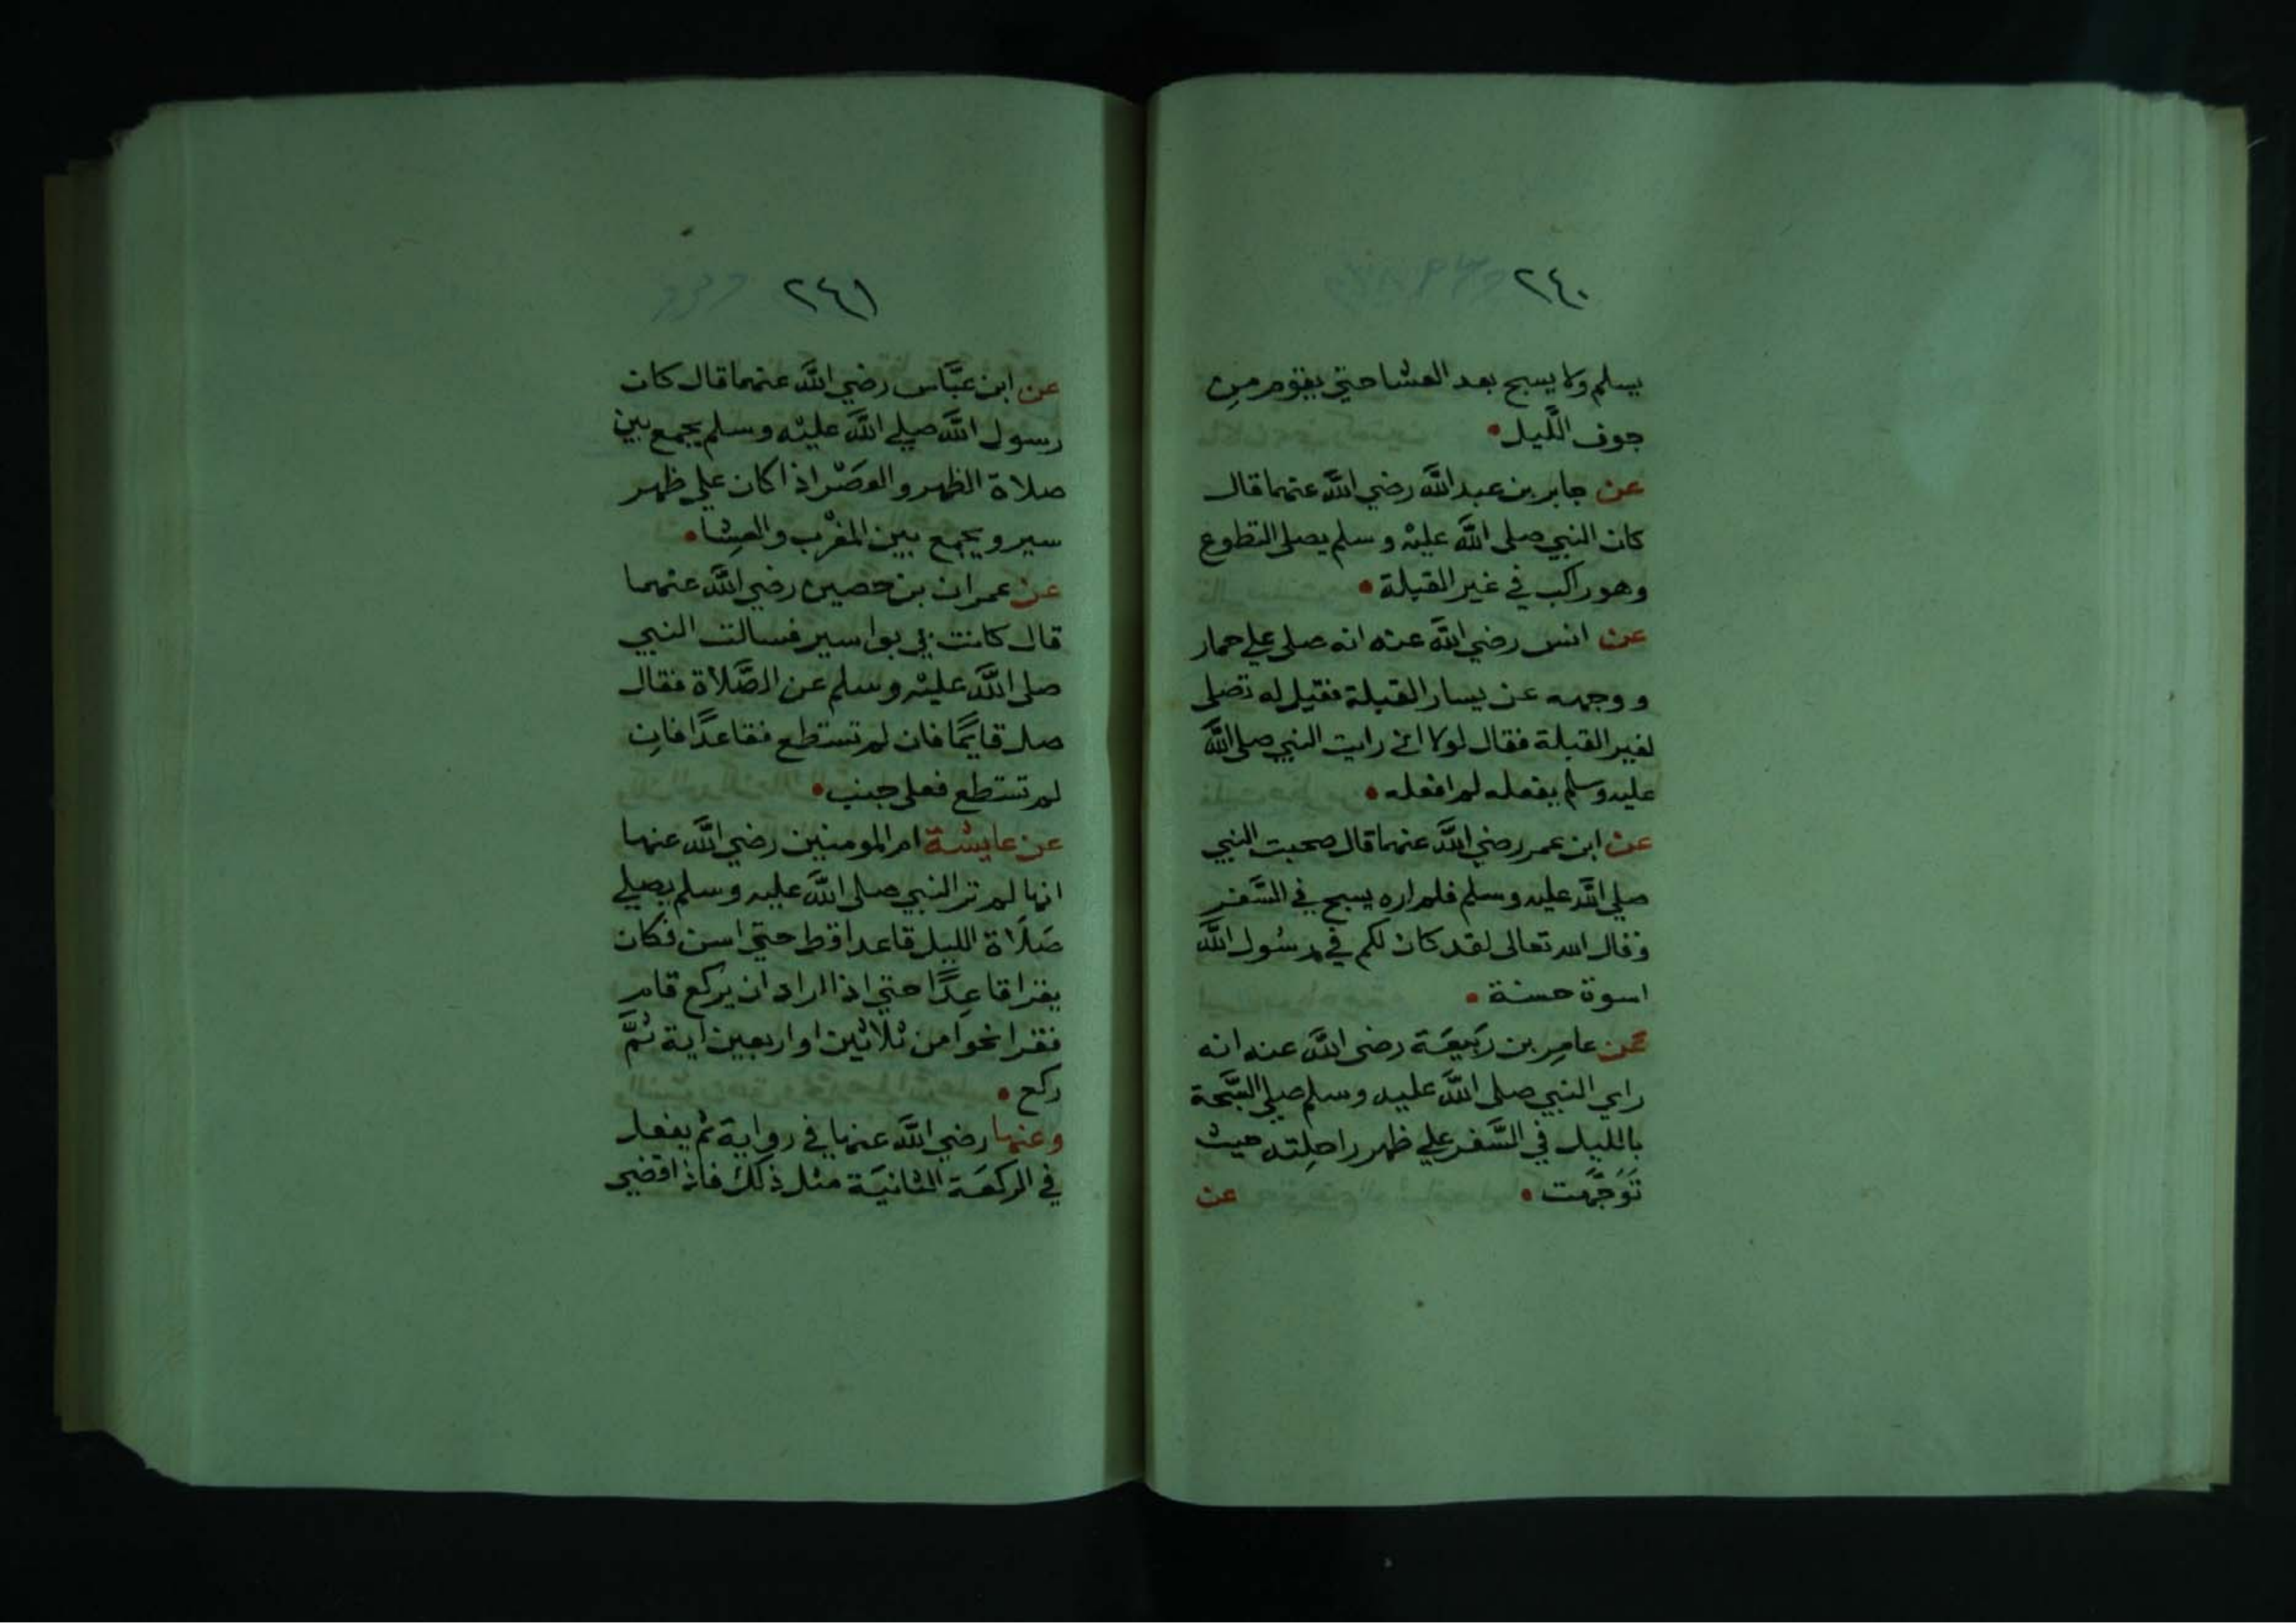 ٢٤٠
يسلم ولا يسبح بعد العشا حتي يقوم من
جوف اللَّيل
عن جابر بن عبد اللَّه رضي اللَّه عنهما قال
كان النبي صلى اللَّه عليه وسلم يصلي التطوع
وهو راكب في غير القبلة
عن انس رضي اللَّه عنه انه صلي علي حمار
ووجهه عن يسار القبلة فقيل له تصلي
لغير القبلة فقال لولا اني رايت النبي صلى اللَّه
عليه وسلم يفعله لم افعله
عن ابن عمر رضي اللَّه عنهما قال صحبت النبي
صلي اللَّه عليه وسلم فلم اره يسبح في السَّفر
وقال الله تعالى لقد كان لكم في رسُول اللَّه
اسوة حسنة
عن عامِر بن رَبيعَة رضي اللَّه عنه انه
راي النبي صلى اللَّه عليه وسلم صلي السُّبحة
بالليل في السَّفر علي ظهر راحِلته حيث
تَوَجَّهت عن
٢٤١
عن ابن عبَّاس رضي اللَّه عنهما قال كان
رسول اللَّه صلي اللَّه عليْه وسلم يجمع بين
صلاة الظهر والعَصْر اذا كان علي ظهر
سير ويجمع بين المغْرب والعِشا
عن عمران بن حصين رضي اللَّه عنهما
قال كانت بي بواسير فسالت النبي
صلى اللَّه عليْه وسلم عن الصَّلاة فقال
صل قايمًا فان لم تستطع فقاعدًا فان
لم تستطع فعلى جنب
عن عايشة ام المومنين رضي اللَّه عنها
انها لم تر النبي صلى اللَّه عليه وسلم يصلي
صَلَاة الليل قاعدا قط حتي اسن فكان
يقرا قاعِدًا حتي اذا اراد ان يركع قام
فقرا نحوا من ثلاثين او اربعين اية ثمَّ
ركع
وعنها رضي اللَّه عنها في رواية ثم يفعل
في الركعَة الثانيَة مثل ذلك فاذا قضي